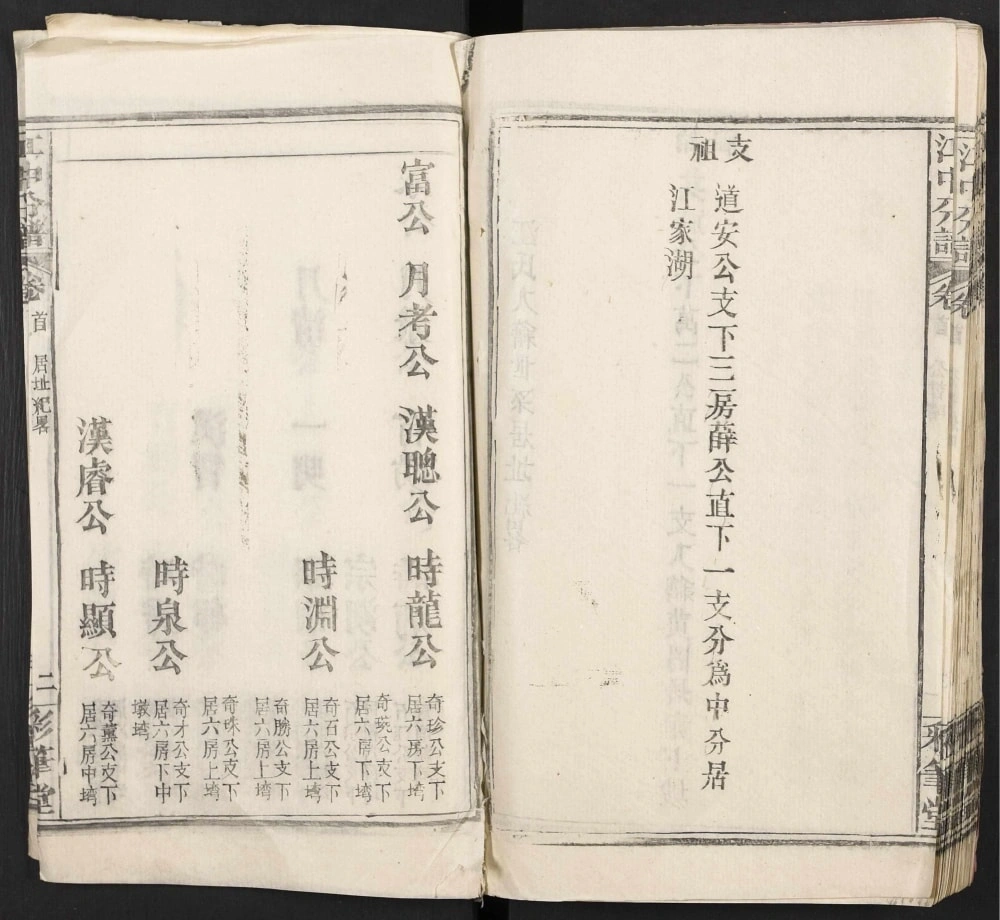 江中分譜
卷首
彩筆堂
支祖
道安公支下三房薛公直下一支分為中分居
江家湖
富公 月考公 漢聰公 時龍公
奇珍公支下
居六房下塆
奇瑛公支下
居六房下塆
時淵公
奇石公支下
居六房上塆
奇勝公支下
居六房上塆
奇珠公支下
居六房上塆
時泉公
奇才公支下
居六房下中
墩塆
漢睿公 時顯公
奇黨公支下
居六房中塆
江中分譜
卷首 居址紀畧
二
彩筆堂